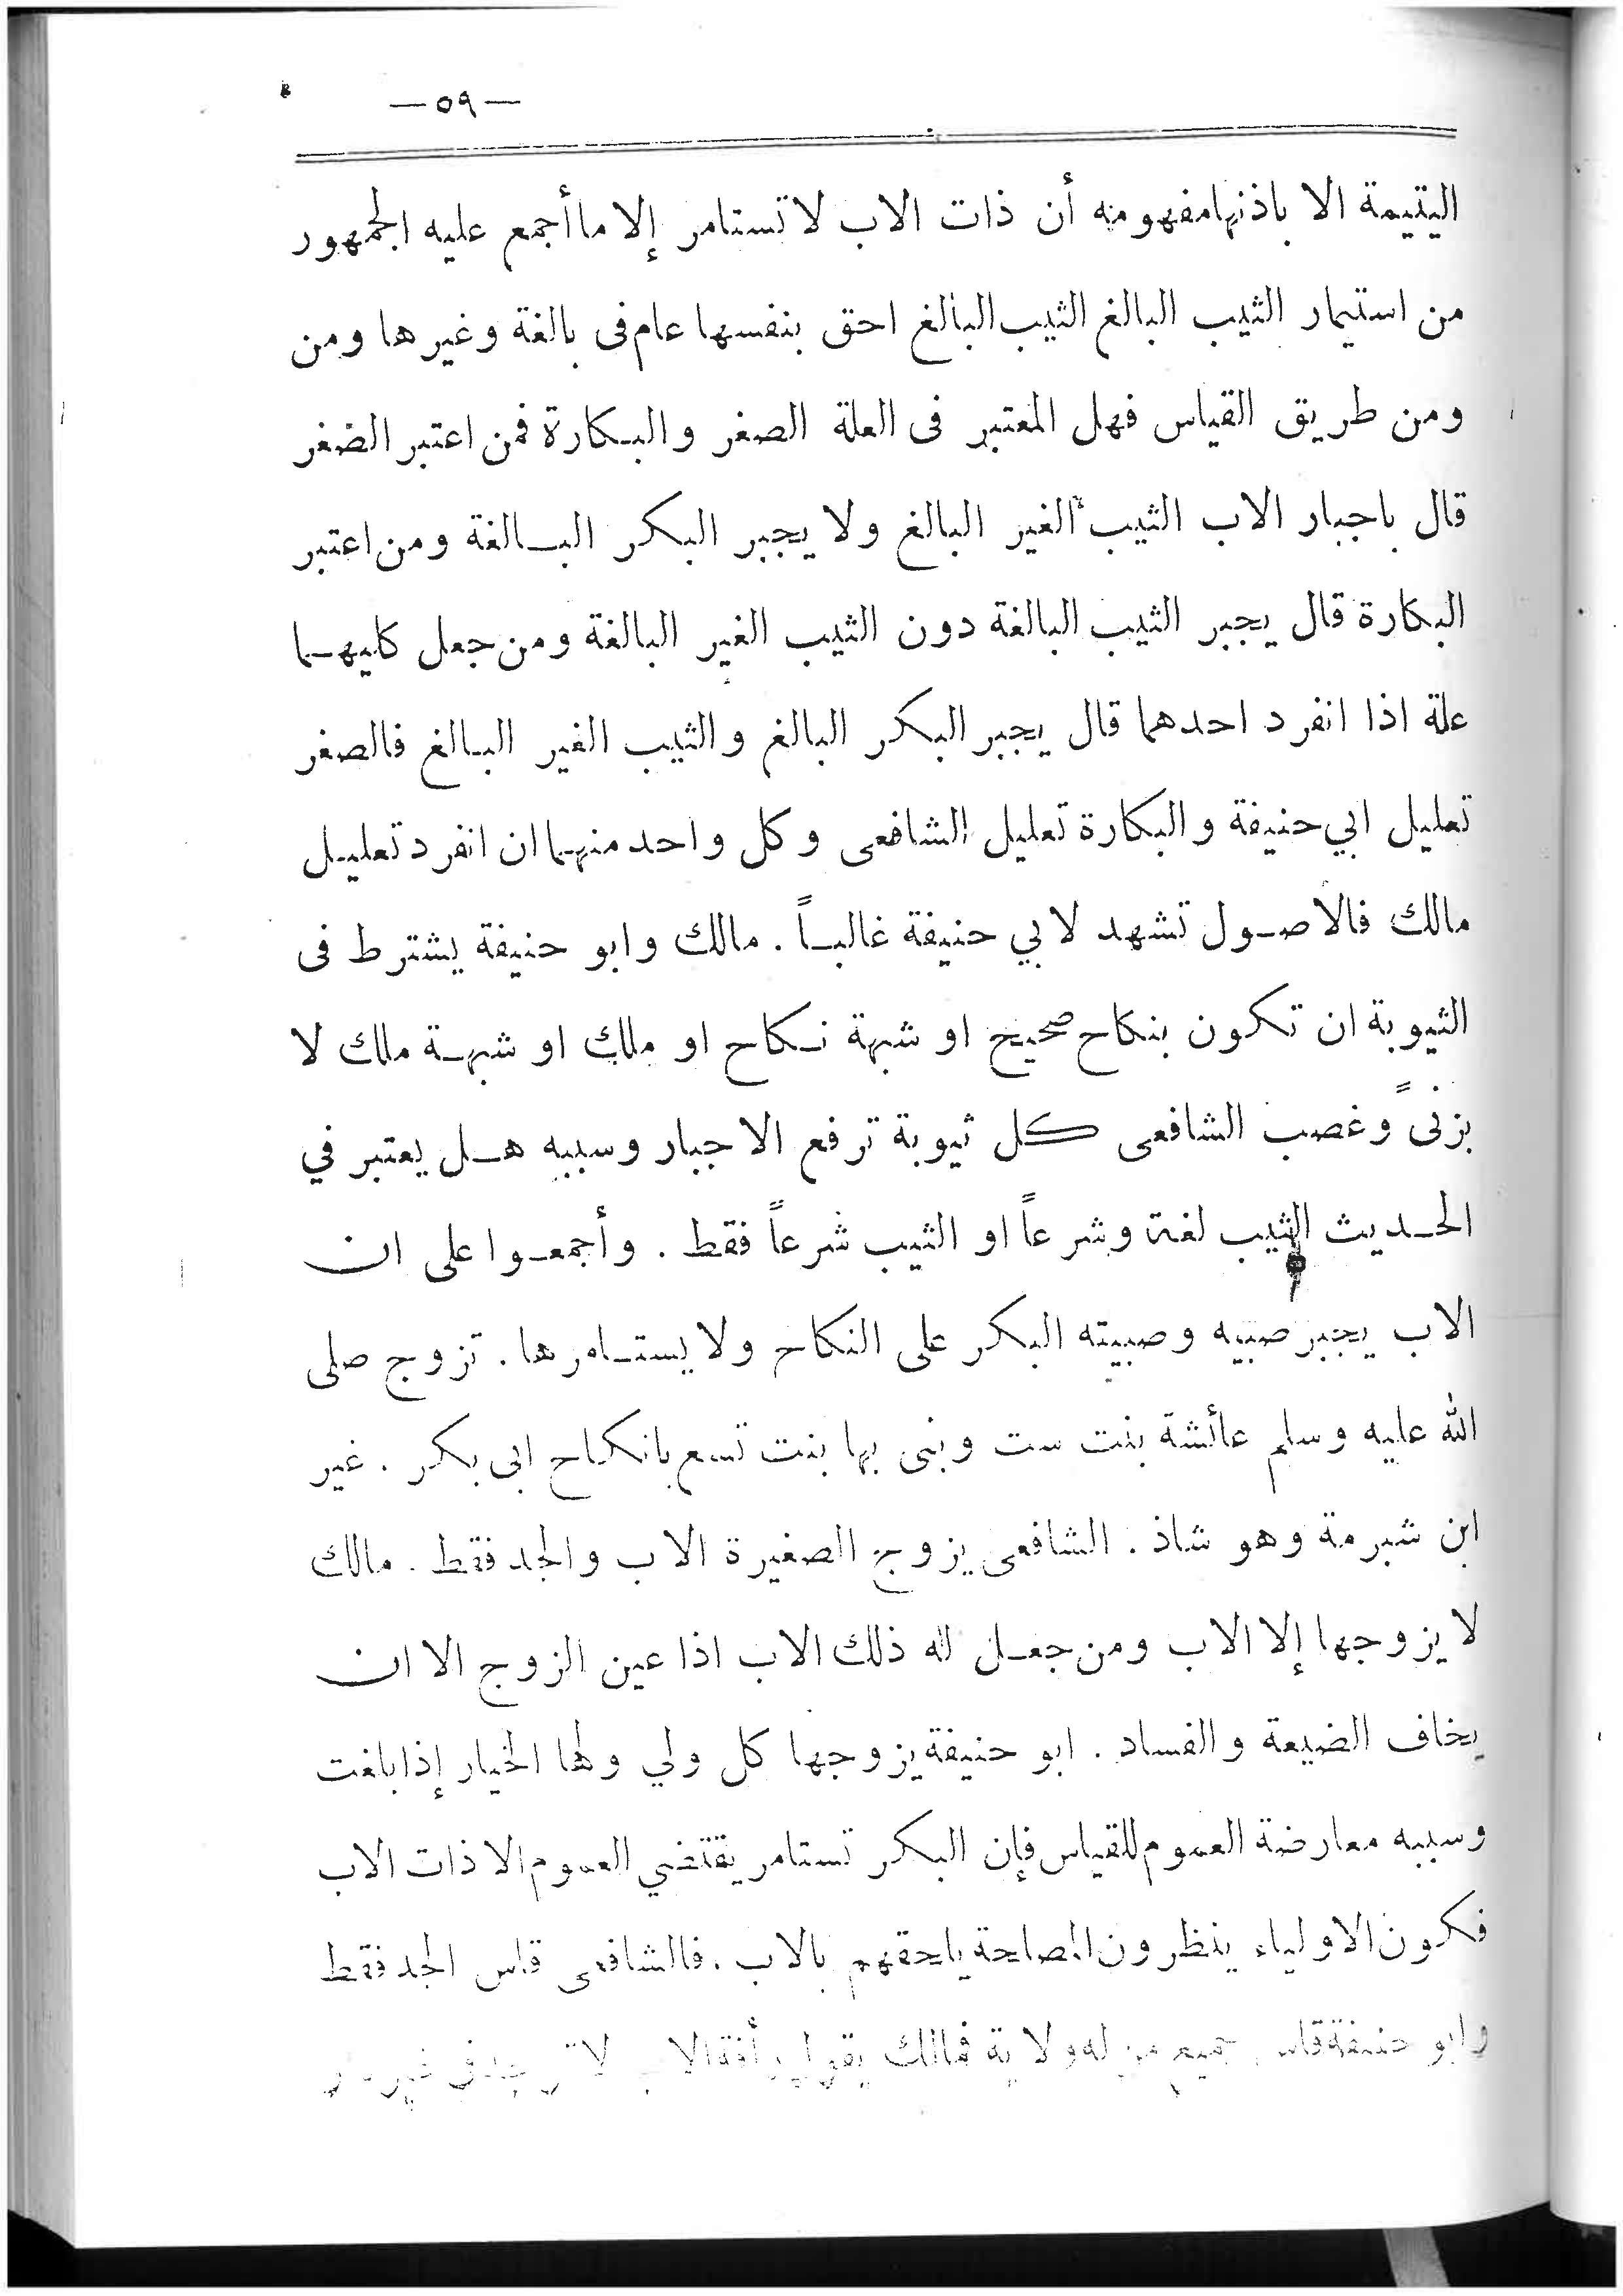 — ٥٩ —
اليتيمة الا باذنها مفهومه أن ذات الاب لا تستامر إلا ما أجمع عليه الجمهور
من استيمار الثيب البالغ الثيب البالغ احق بنفسها عام فى بالغة وغيرها ومن
ومن طريق القياس فهل المعتبر فى العلة الصغر والبكارة فمن اعتبر الصغر
قال باجبار الاب الثيب الغير البالغ ولا يجبر البكر البالغة ومن اعتبر
البكارة قال يجبر الثيب البالغة دون الثيب الغير البالغة ومن جعل كليهما
علة اذا انفرد احدهما قال يجبر البكر البالغ والثيب الغير البالغ فالصغر
تعليل ابي حنيفة والبكارة تعليل الشافعى وكل واحد منهما ان انفرد تعليل
مالك فالاصول تشهد لابي حنيفة غالباً . مالك وابو حنيفة يشترط فى
الثيوبة ان تكون بنكاح صحيح او شبهة نكاح او ملك او شبهة ملك لا
بزنىً وغصب الشافعى كل ثيوبة ترفع الاجبار وسببه هل يعتبر في
الحديث الثيب لغة وشرعاً او الثيب شرعاً فقط . وأجمعوا على ان
الاب يجبر صبيه وصبيته البكر على النكاح ولا يستامرها . تزوج صلى
الله عليه وسلم عائشة بنت ست وبنى بها بنت تسع بانكاح ابى بكر . غير
ابن شبرمة وهو شاذ . الشافعى يزوج الصغيرة الاب والجد فقط . مالك
لا يزوجها إلا الاب ومن جعل له ذلك الاب اذا عين الزوج الا ان
يخاف الضيعة والفساد . ابو حنيفة يزوجها كل ولي ولها الخيار إذا بلغت
وسببه معارضة العموم للقياس فإن البكر تستامر يقتضي العموم الا ذات الاب
فكون الاولياء ينظرون المصلحة يلحقهم بالاب . فالشافعى قاس الجد فقط
وابو حنيفة قاس جميع من له ولاية فمالك يقول رأفة الاب لا توجد فى غيره